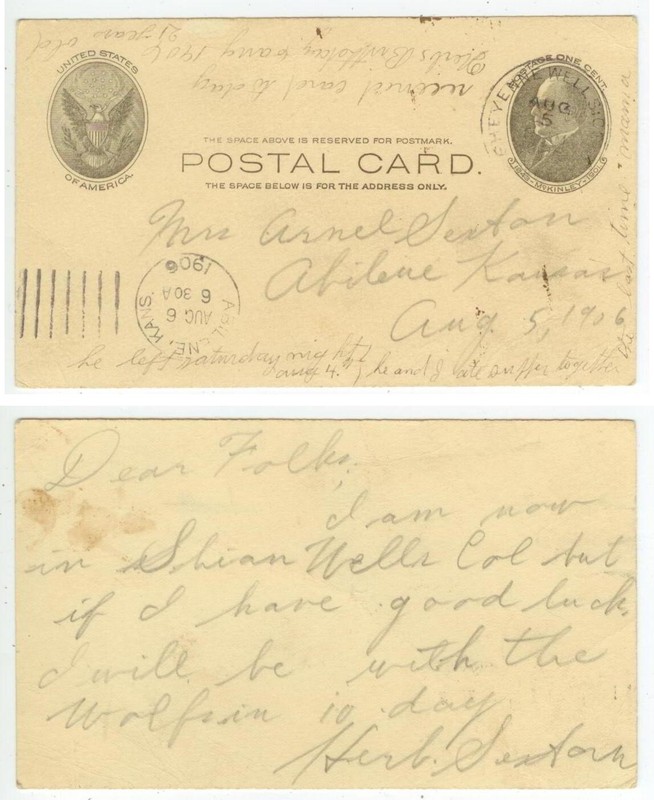 Herbs Birthday 1906
21 years old
received card to day
UNITED STATES
OF AMERICA.
POSTAGE ONE CENT
1843-McKINLEY-1901
CHEYENNE WELLS
AUG
5
THE SPACE ABOVE IS RESERVED FOR POSTMARK.
POSTAL CARD.
THE SPACE BELOW IS FOR THE ADDRESS ONLY.
Mrs Arnel Sexton
Abilene Kansas
Aug. 5, 1906
ABILENE, KANS.
AUG 6
6 30A
1906
he left saturday night
aug 4. he and I ate supper together
the last time mamie
Dear Folks,
I am now
in Shian Wells Col but
if I have good luck,
I will be with the
Wolfs in 10 day
Herb. Sexton